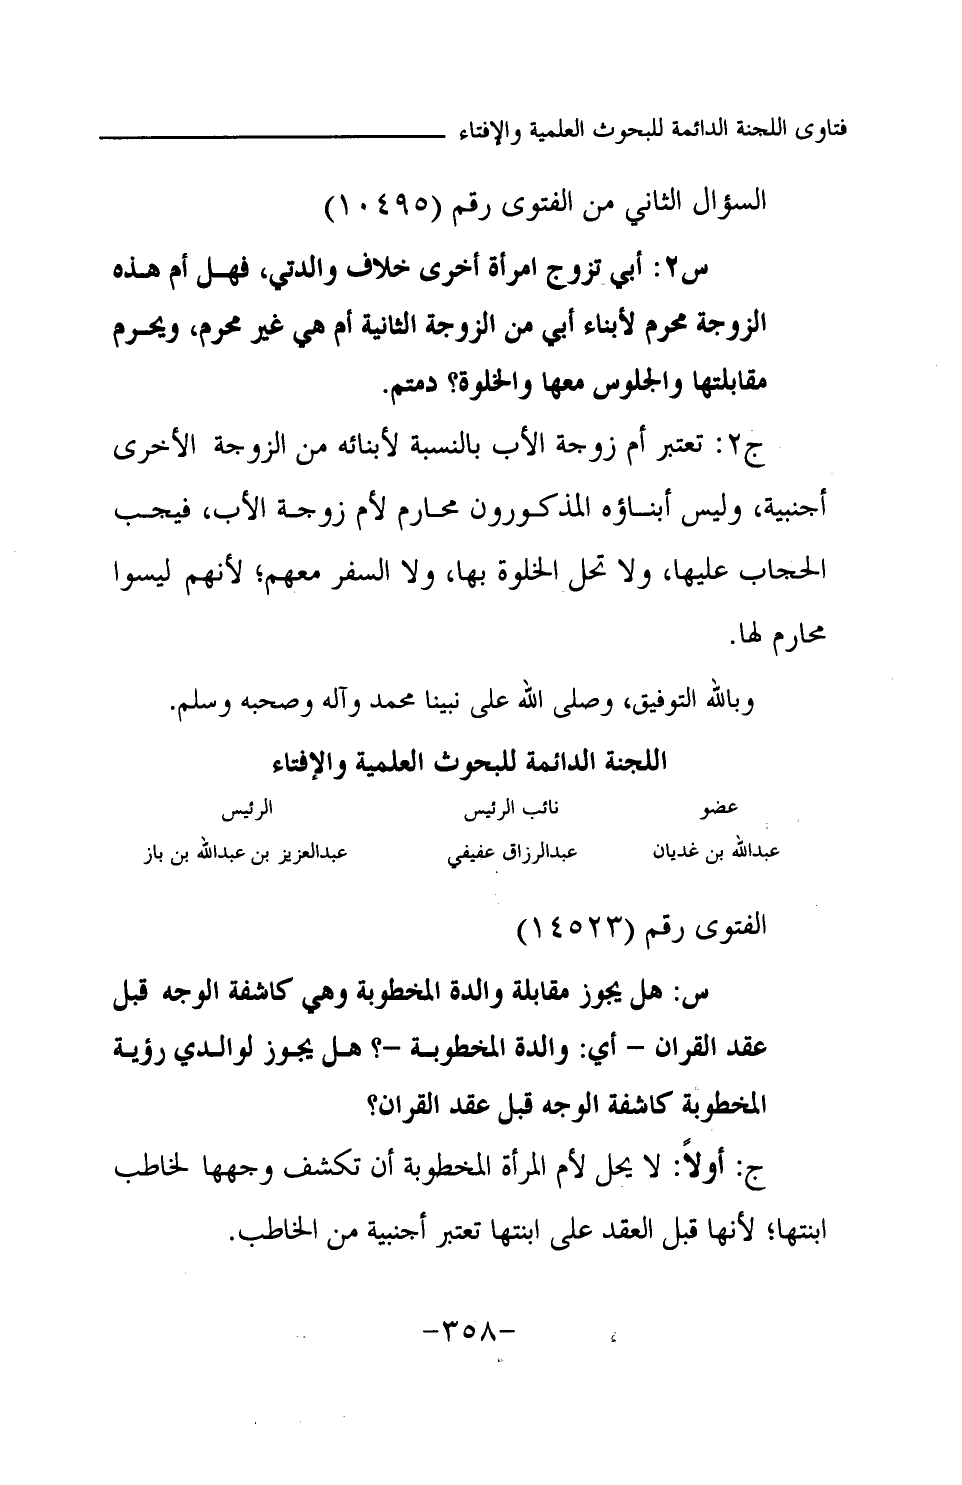 فتاوى اللجنة الدائمة للبحوث العلمية والإفتاء
السؤال الثاني من الفتوى رقم (١٠٤٩٥)
س٢: أبي تزوج امرأة أخرى خلاف والدتي، فهل أم هذه
الزوجة محرم لأبناء أبي من الزوجة الثانية أم هي غير محرم، ويحرم
مقابلتها والجلوس معها والخلوة؟ دمتم.
ج٢: تعتبر أم زوجة الأب بالنسبة لأبنائه من الزوجة الأخرى
أجنبية، وليس أبناؤه المذكورون محارم لأم زوجة الأب، فيجب
الحجاب عليها، ولا تحل الخلوة بها، ولا السفر معهم؛ لأنهم ليسوا
محارم لها.
وبالله التوفيق، وصلى الله على نبينا محمد وآله وصحبه وسلم.
اللجنة الدائمة للبحوث العلمية والإفتاء
عضو نائب الرئيس الرئيس
عبدالله بن غديان عبدالرزاق عفيفي عبدالعزيز بن عبدالله بن باز
الفتوى رقم (١٤٥٢٣)
س: هل يجوز مقابلة والدة المخطوبة وهي كاشفة الوجه قبل
عقد القران – أي: والدة المخطوبة –؟ هل يجوز لوالدي رؤية
المخطوبة كاشفة الوجه قبل عقد القران؟
ج: أولاً: لا يحل لأم المرأة المخطوبة أن تكشف وجهها لخاطب
ابنتها؛ لأنها قبل العقد على ابنتها تعتبر أجنبية من الخاطب.
–٣٥٨–